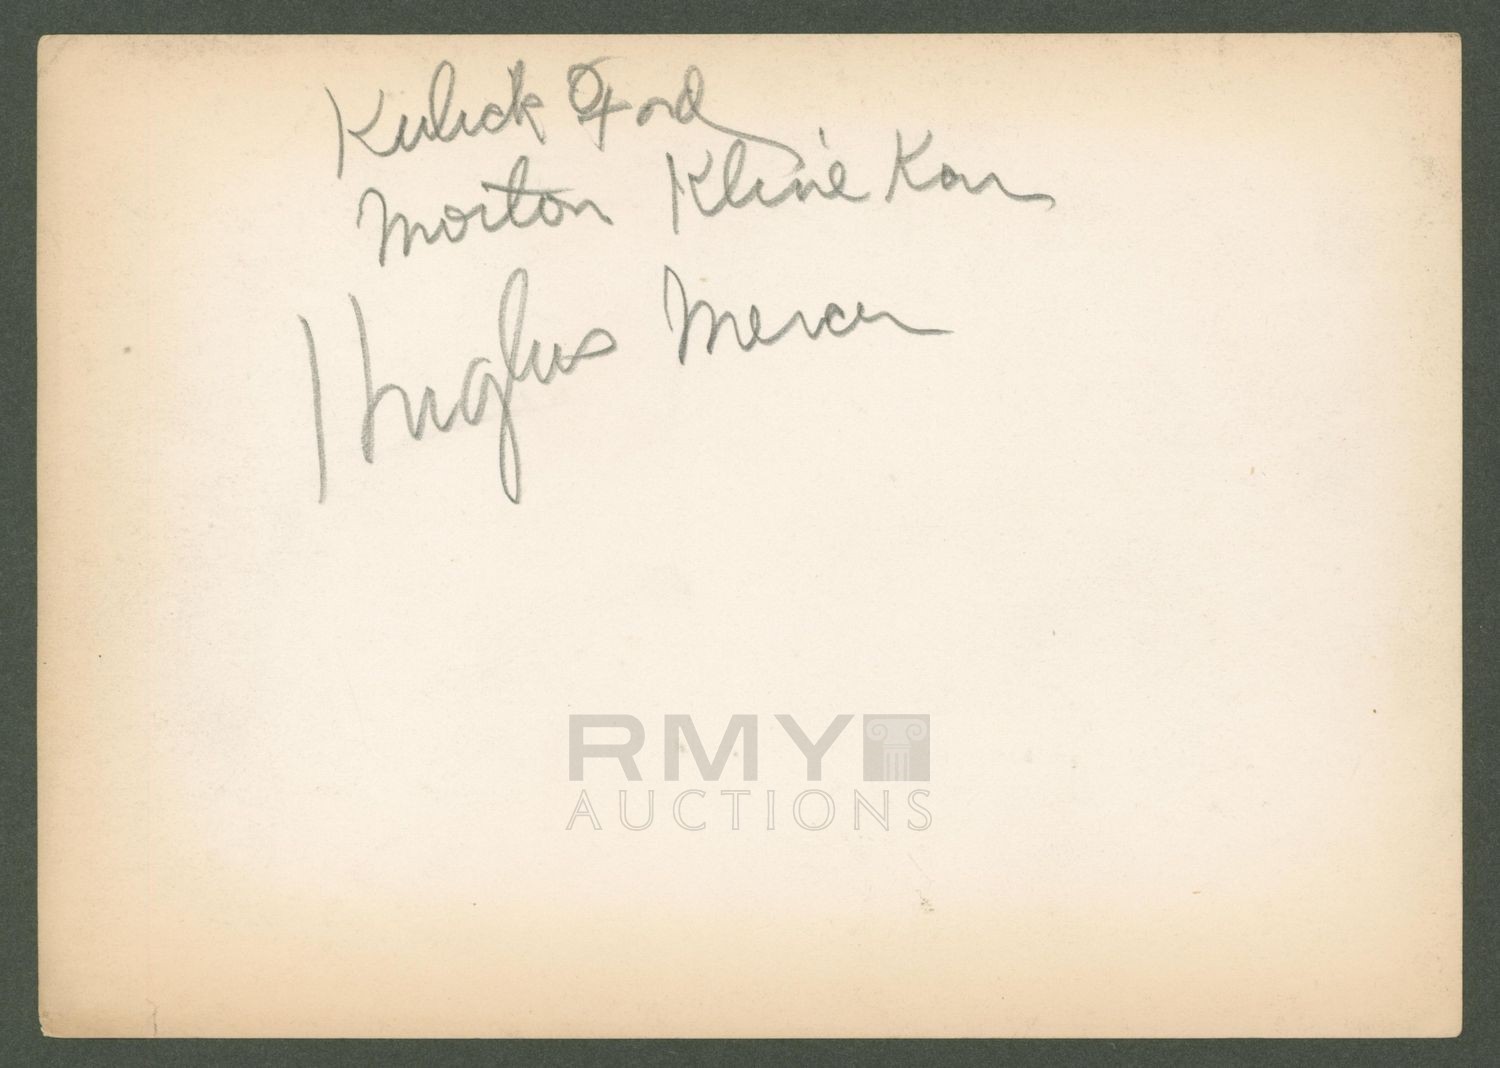 Kulick Ford
Morton Kline Kar
Hughes Mercer
RMY
AUCTIONS